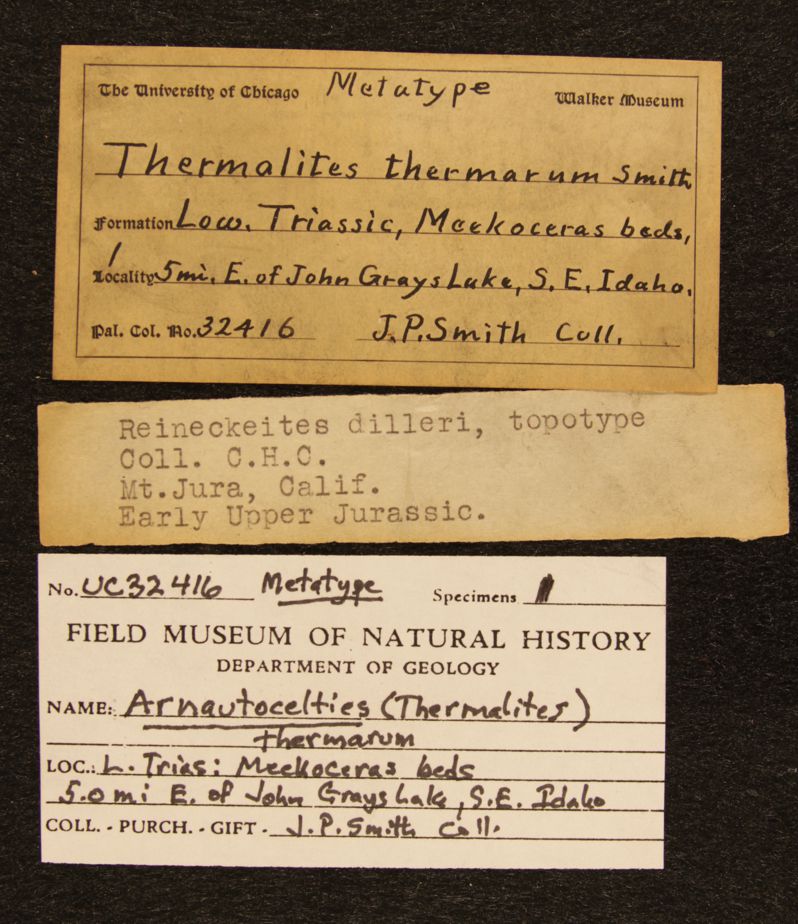 The University of Chicago Metatype Walker Museum
Thermalites thermarum Smith
Formation Low. Triassic, Meekoceras beds,
1
Locality 5mi. E. of John Grays Lake, S. E. Idaho.
Pal. Col. No. 32416 J.P. Smith Coll.
Reineckeites dilleri, topotype
Coll. C.H.C.
Mt. Jura, Calif.
Early Upper Jurassic.
No. UC32416 Metatype Specimens 1
FIELD MUSEUM OF NATURAL HISTORY
DEPARTMENT OF GEOLOGY
NAME: Arnautocelties (Thermalites)
thermarum
LOC.: L. Trias: Meekoceras beds
5.0 mi E. of John Grays Lake, S.E. Idaho
COLL. - PURCH. - GIFT - J.P. Smith Coll.